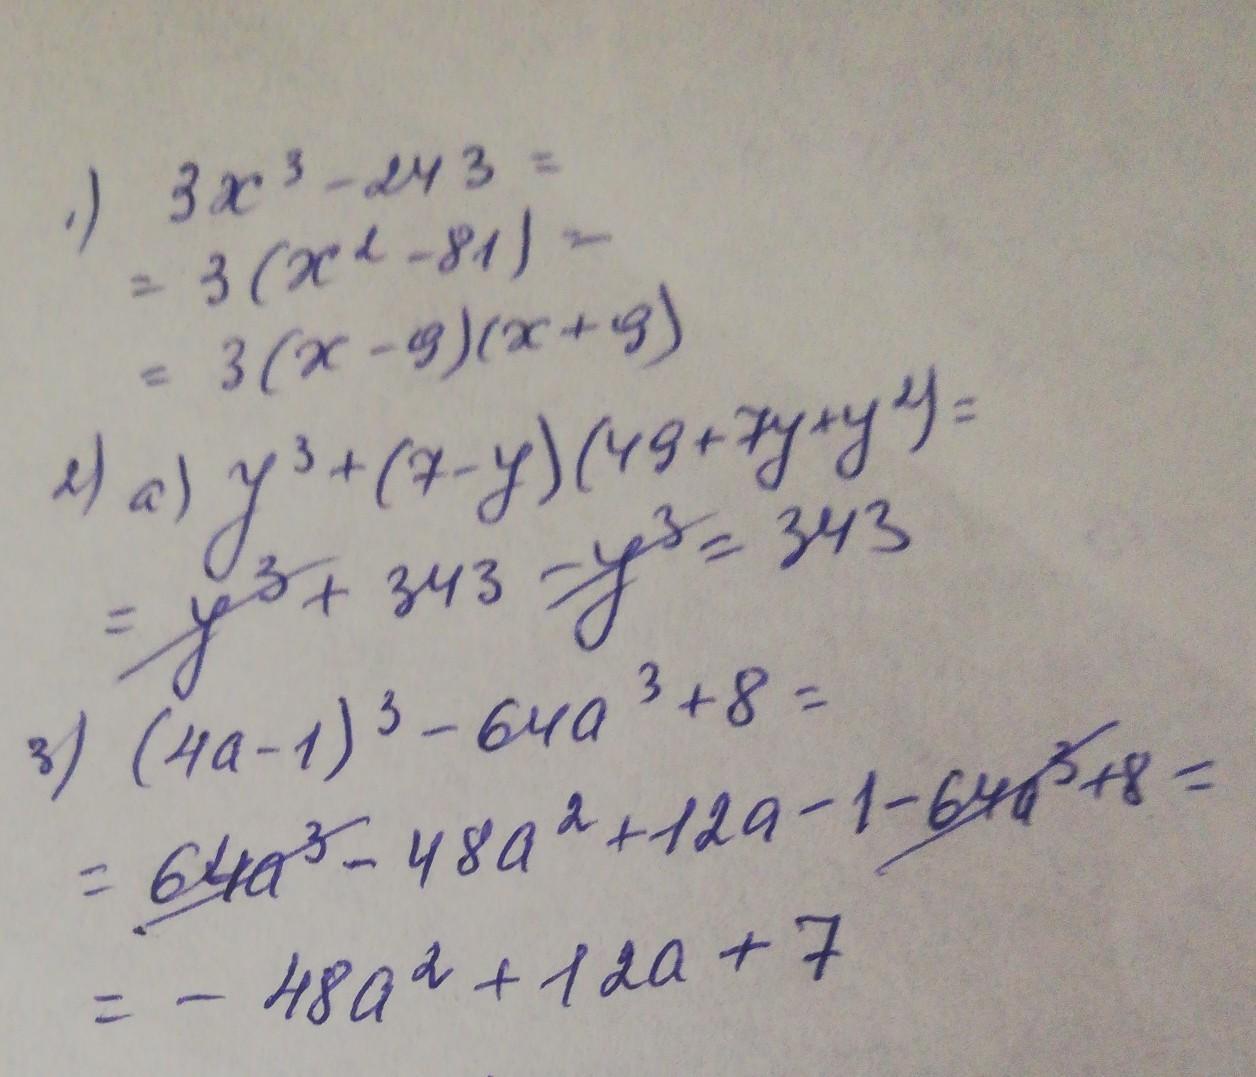 1) 3x³ - 243 =
= 3(x² - 81) =
= 3(x - 9)(x + 9)
2) а) y³ + (7 - y)(49 + 7y + y²) =
= y³ + 343 - y³ = 343
3) (4a - 1)³ - 64a³ + 8 =
= 64a³ - 48a² + 12a - 1 - 64a³ + 8 =
= - 48a² + 12a + 7